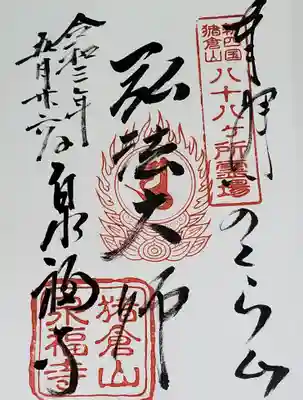 奉拝 いのくら山
新四国
猪倉山
八十八ヶ所霊場
弘法大師
泉福寺
令和三年
五月廿六日
猪倉山
泉福寺